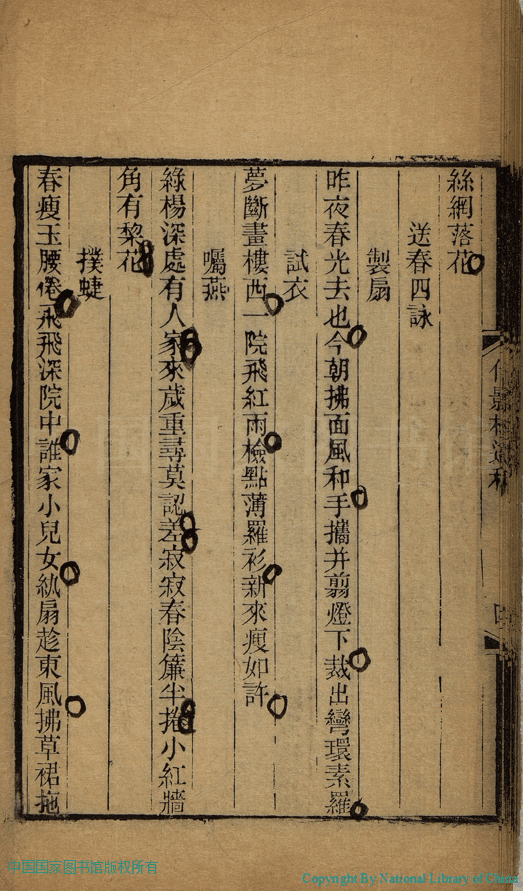 絲網落花
送春四詠
製扇
昨夜春光去也今朝拂面風和手攜并翦燈下裁出彎環素羅
試衣
夢斷畫樓西一院飛紅雨檢點薄羅衫新來瘦如許
囑燕
綠楊深處有人家來歲重尋莫認差寂寂春陰簾半捲小紅牆
角有棃花
撲蜨
春瘦玉腰倦飛飛深院中誰家小兒女紈扇趁東風拂草裙拖
中国国家图书馆版权所有
Copyright By National Library of China